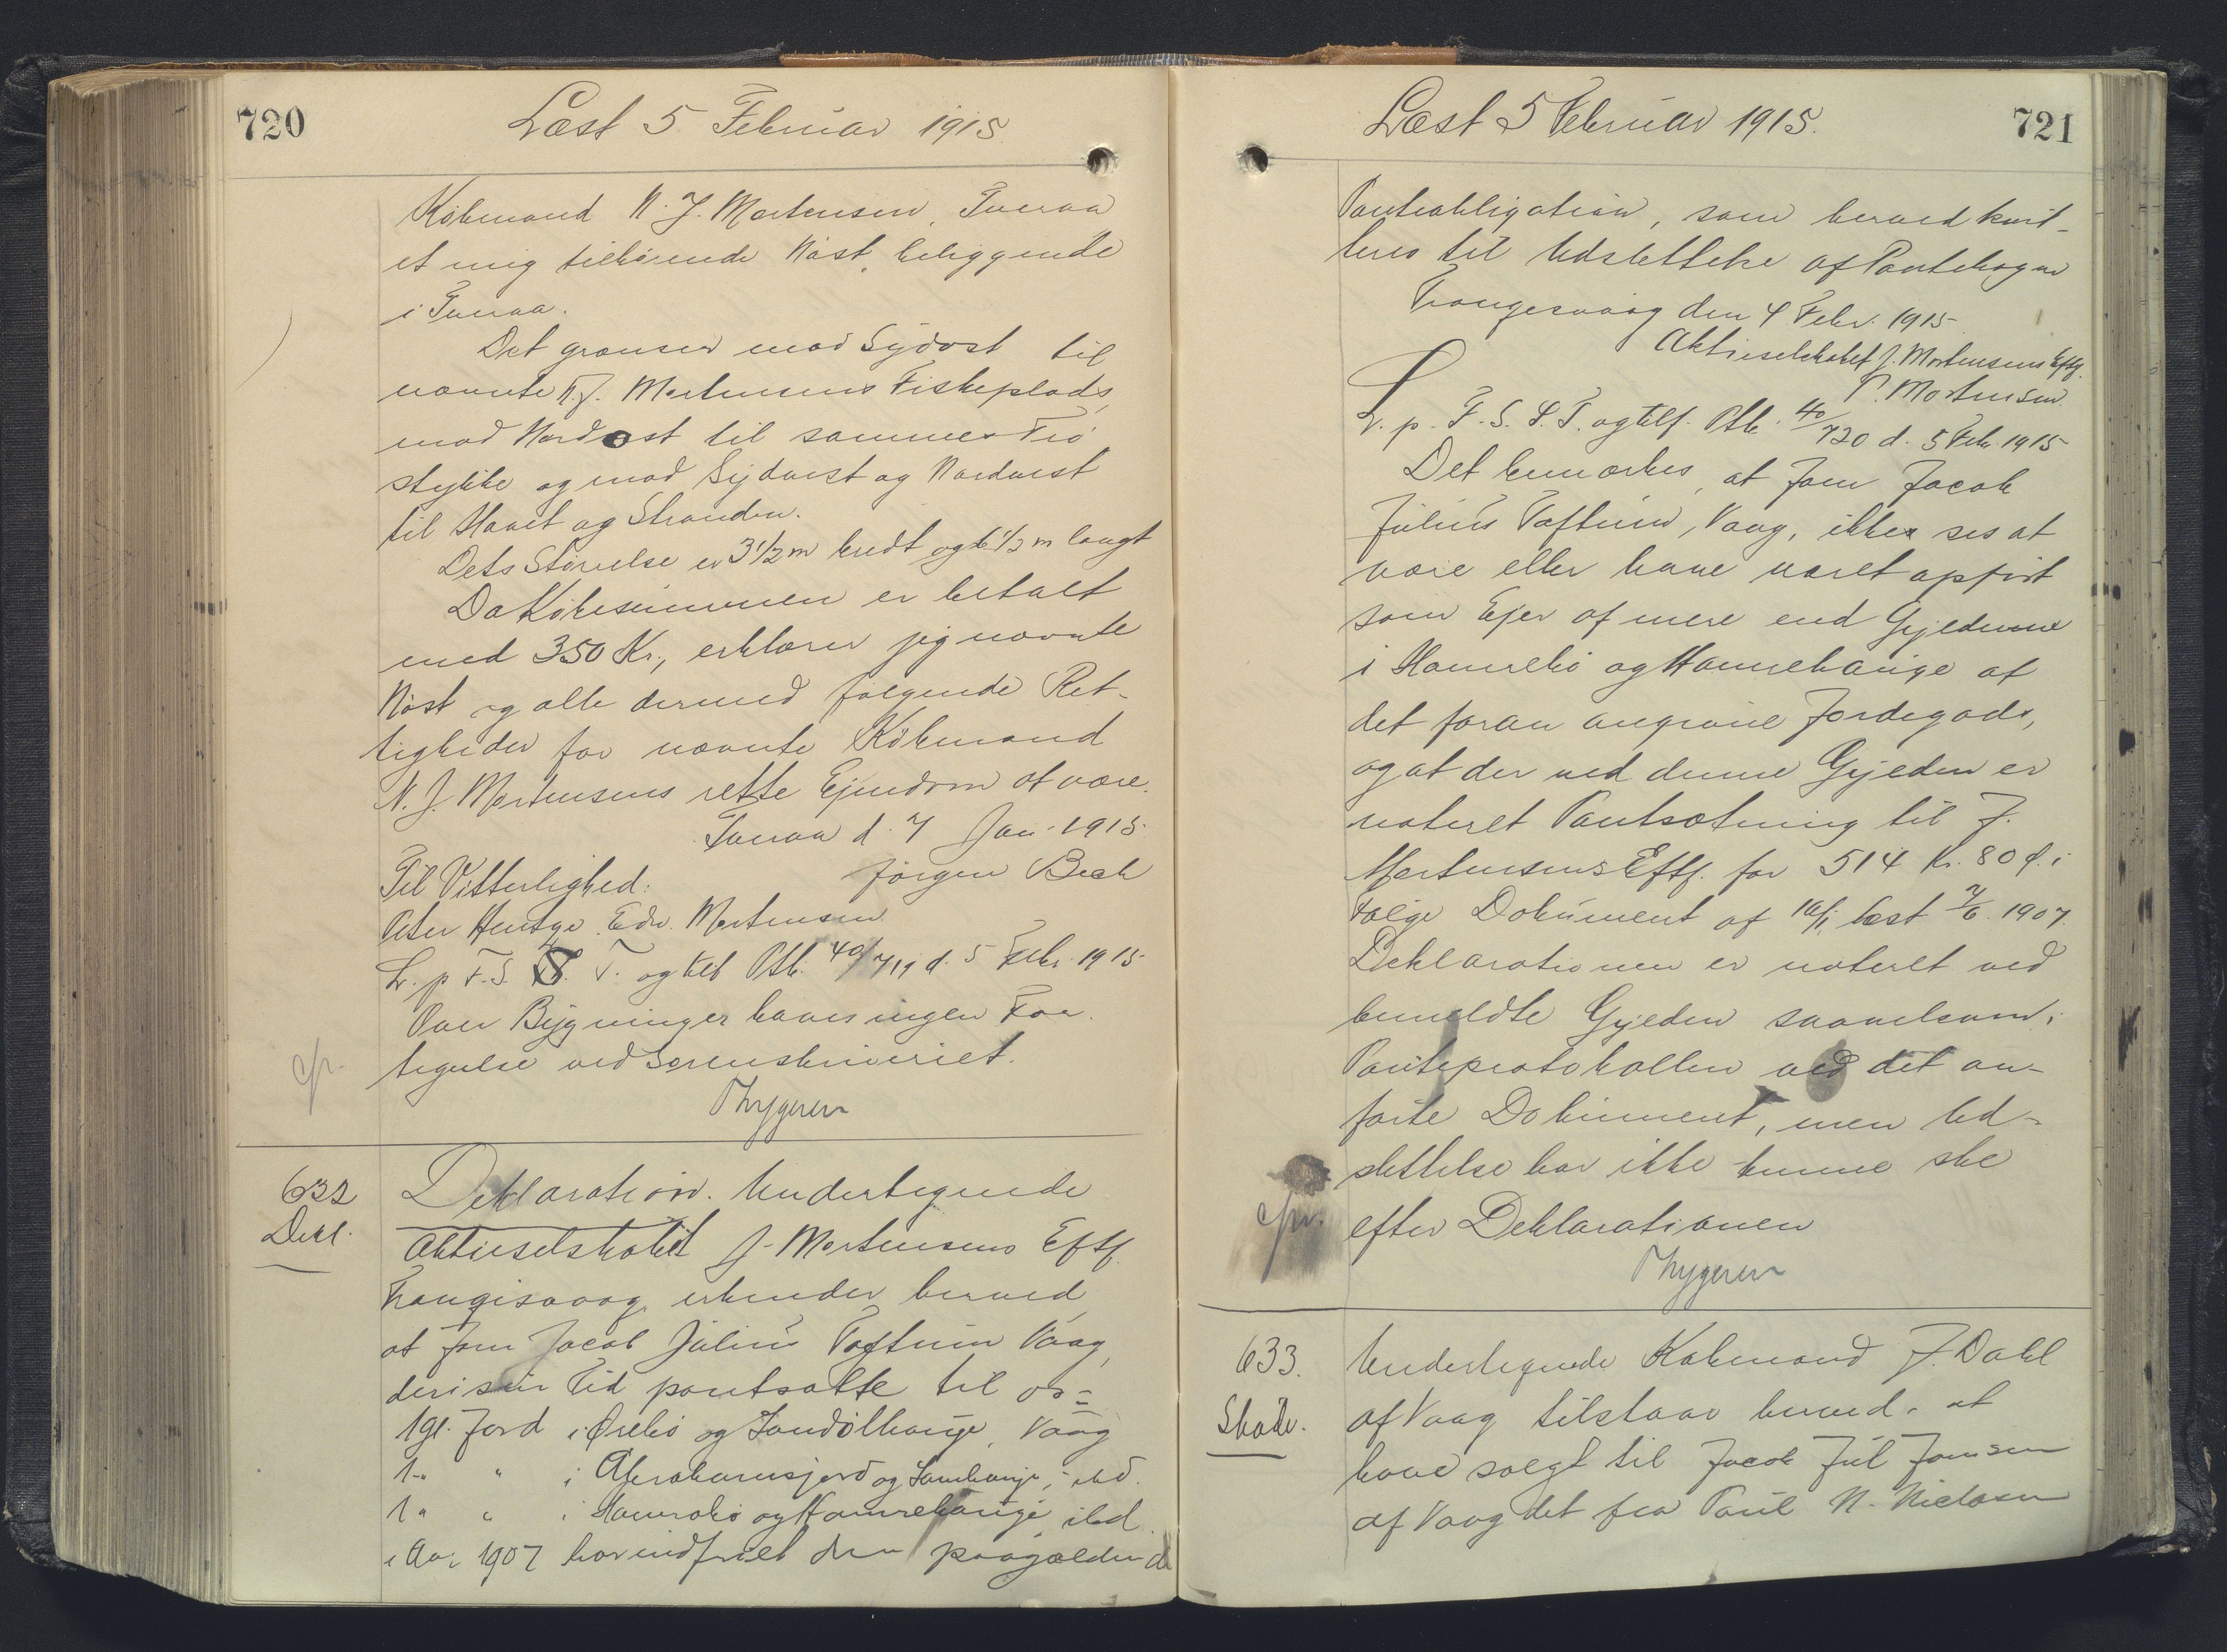 720
Læst 5 Februar 1915.
Købmand N. J. Mortensen, Tveraa
et mig tilhørende Nøst, beliggende
i Tveraa.
Det grænser mod Sydøst til
nævnte N. J. Mortensens Fiskeplads,
mod Nordøst til sammes Trø
stykke og mod Sydvest og Nordvest
til Havet og Stranden.
Dets Størrelse er 3½ m bredt og 6½ m langt
Da Købesummen er betalt
med 350 Kr., erklærer jeg nævnte
Nøst og alle dermed følgende Ret-
tigheder for nævnte Købmand
N. J. Mortensens rette Ejendom at være.
Tveraa d. 7 Jan. 1915.
Til Vitterlighed: Jörgen Bech
Peter Hentze. Edv. Mortensen.
L. p. F. S. S. T. og tilf. Ptb. 40/719 d. 5 Febr. 1915.
Over Bygninger haves ingen For-
tegnelse ved Sorenskriveriet.
cfr.
Thygesen
632
Dekl.
Deklaration. Undertegnede
Aktieselskabet J. Mortensens Eftf.
Trangisvaag erkender herved,
at Jom Jacob Julius Toftum Vaag,
der i sin Tid pantsatte til os =
1 Gl. Jord i Ørebø og Sandølhauge, Vaag
1 - " " i Abrahamsjord og Sandhauge, ibd.
1 " " i Hamrebø og Hamrehauge ibd.
i Aar 1907 har indfriet den paagældende
721
Læst 5 Februar 1915.
Pantobligation, som herved kvit-
teres til Udslettelse af Pantebogen
Trongesvaag den 4 Febr. 1915.
Aktieselskabet J. Mortensens Eftf.
P. Mortensen.
L. p. F. S. S. T. og tilf. Ptb. 40/720 d. 5 Febr. 1915
Det bemærkes, at Jom Jacob
Julius Toftum, Vaag, ikke ses at
være eller have været opført
som Ejer af mere end Gyldenen
i Hamrebø og Hamrehauge af
det foran angivne Jordegods,
og at der ved denne Gylden er
noteret Pantsætning til J.
Mortensens Eftf. for 514 Kr. 80 Ø. i
Følge Dokument af 16/1, læst 7/6. 1907.
Deklarationen er noteret ved
bemeldte Gylden saavelsom i
Panteprotokollen ved det an-
førte Dokument, men Ud-
slettelse har ikke kunne ske
efter Deklarationen
cfr.
Thygesen
633.
Skøde.
Undertegnede Købmand J. Dahl
af Vaag tilstaar herved at
have solgt til Jacob Jul Joensen
af Vaag det fra Poul N. Nielsen